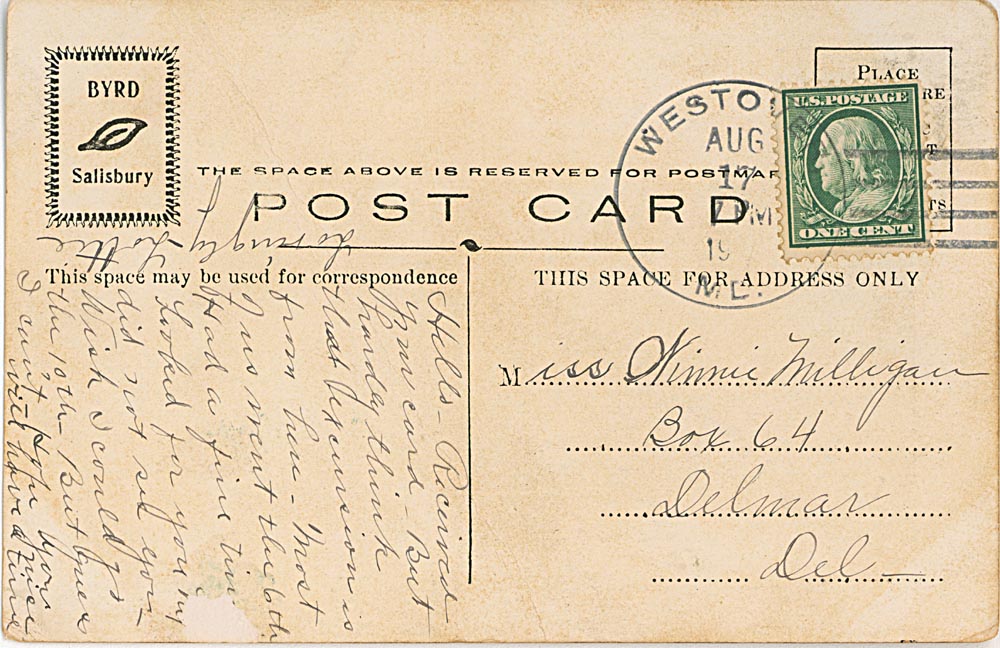 BYRD
Salisbury
PLACE
RE
T
TS
WESTO
AUG
17
7 PM
19
U.S. POSTAGE
ONE CENT
THE SPACE ABOVE IS RESERVED FOR POSTMAR
POST CARD
This space may be used for correspondence
THIS SPACE FOR ADDRESS ONLY
Miss Ninnie Milligan
Box 64
Delmar
Del—
Hello - Received
your card - But
hardly think
that excursion is
from here - Most
of us went the 6th
Had a fine tim
Looked for you my
did not see you -
Wish I could go
the 10th - But guess
I can't, Hope you
will have a nice
time
Lovingly
Lottie